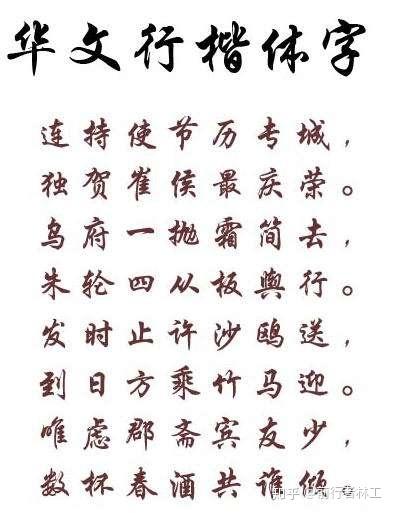 华文行楷体字
连持使节历专城，
独贺崔侯最庆荣。
乌府一抛霜简去，
朱轮四从板舆行。
发时止许沙鸥送，
到日方乘竹马迎。
唯虑郡斋宾友少，
数杯春酒共谁倾。
知乎 @前行者林工